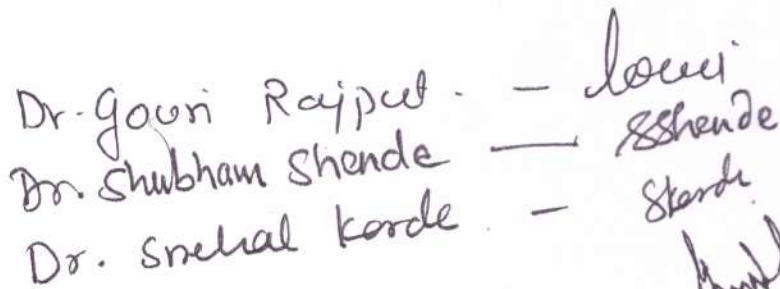 Dr. Gouri Rajput. - Gouri
Dr. Shubham Shende — SShende
Dr. Snehal Korde - Skorde